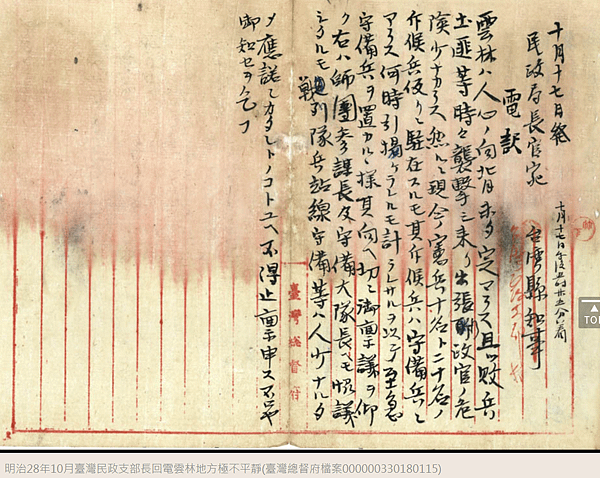 十月十七日発
民政局長官宛
十月十七日午後五時廿五分着
縣知事
電報
雲林ハ人心ノ向背未タ定マラス且ツ敗兵
土匪等時々襲撃シ来リ出張 政官ノ危
険少ナカラス然ルニ現今憲兵十名ト二十名ノ
斥候兵仮リニ駐在スルモ其斥候兵ハ守備兵ニ
アラス何時引揚ケラレルモ計ラレサルヲ以テ至急
守備兵ヲ置カルヽ様其向ヘ切ニ御稟議ヲ仰
ク右ハ師團参謀長及守備大隊長ヘモ協議
シタルモ戦列隊兵站線守備等ハ人少ナルタ
メ應諾シカタシトノコトユヘ不得止稟申ス
御知セヲ乞フ
臺灣總督府
TOP
明治28年10月臺灣民政支部長回電雲林地方極不平靜(臺灣總督府檔案000000330180115)